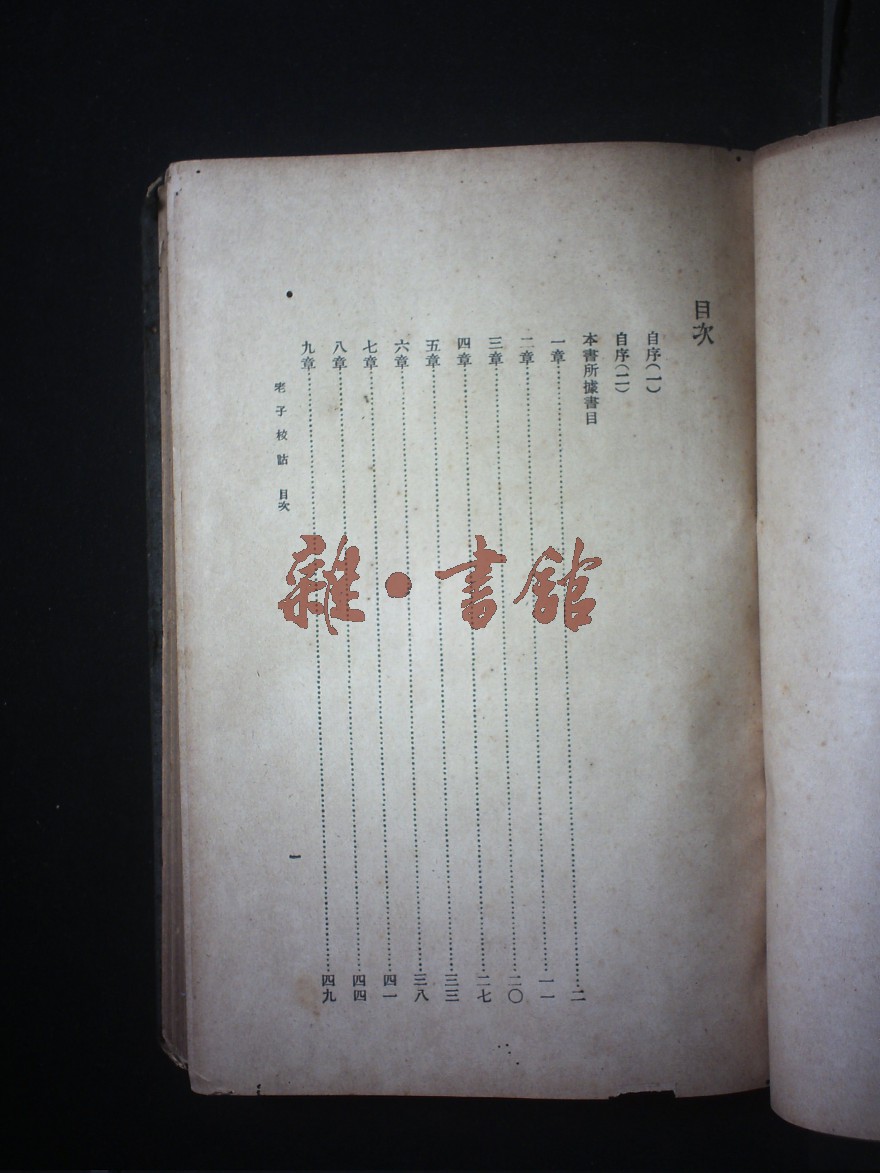 目次
自序(一)
自序(二)
本書所據書目
一章……二
二章……一一
三章……二〇
四章……二七
五章……三三
六章……三八
七章……四一
八章……四四
九章……四九
老子校詁 目次
一
雜·書館